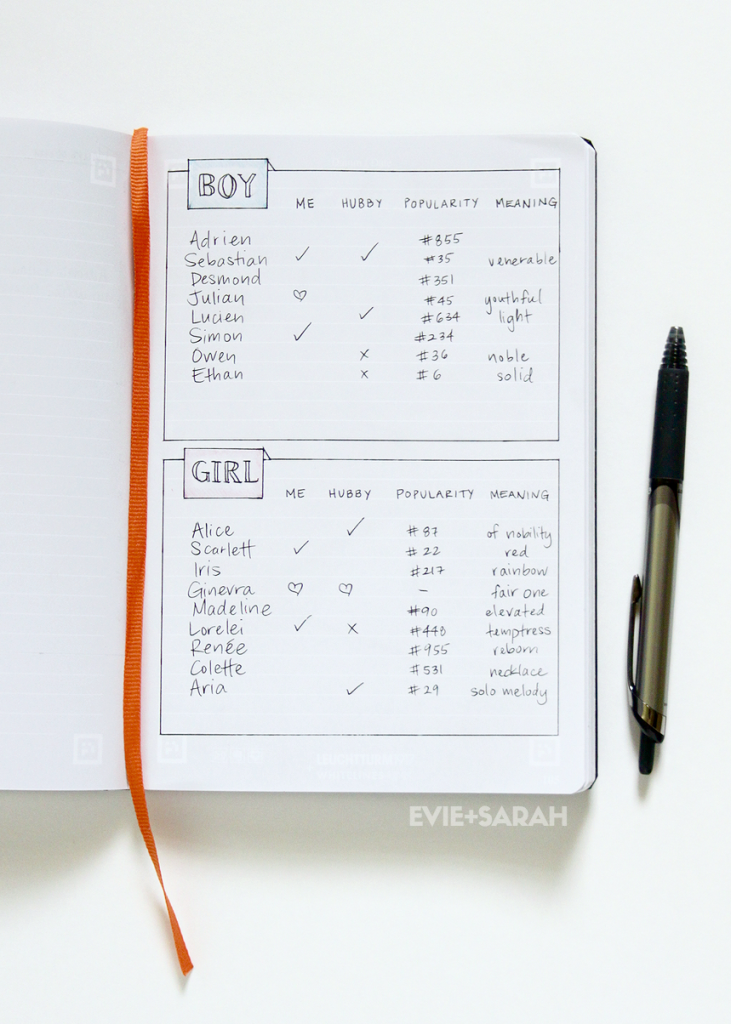 BOY
ME HUBBY POPULARITY MEANING
Adrien #855
Sebastian ✓ ✓ #35 venerable
Desmond #351
Julian ♡ #45 youthful
Lucien ✓ #634 light
Simon ✓ #234
Owen x #36 noble
Ethan x #6 solid
GIRL
ME HUBBY POPULARITY MEANING
Alice ✓ #87 of nobility
Scarlett ✓ #22 red
Iris #217 rainbow
Ginevra ♡ ♡ – fair one
Madeline #90 elevated
Lorelei ✓ x #448 temptress
Renée #955 reborn
Colette #531 necklace
Aria ✓ #29 solo melody
EVIE+SARAH